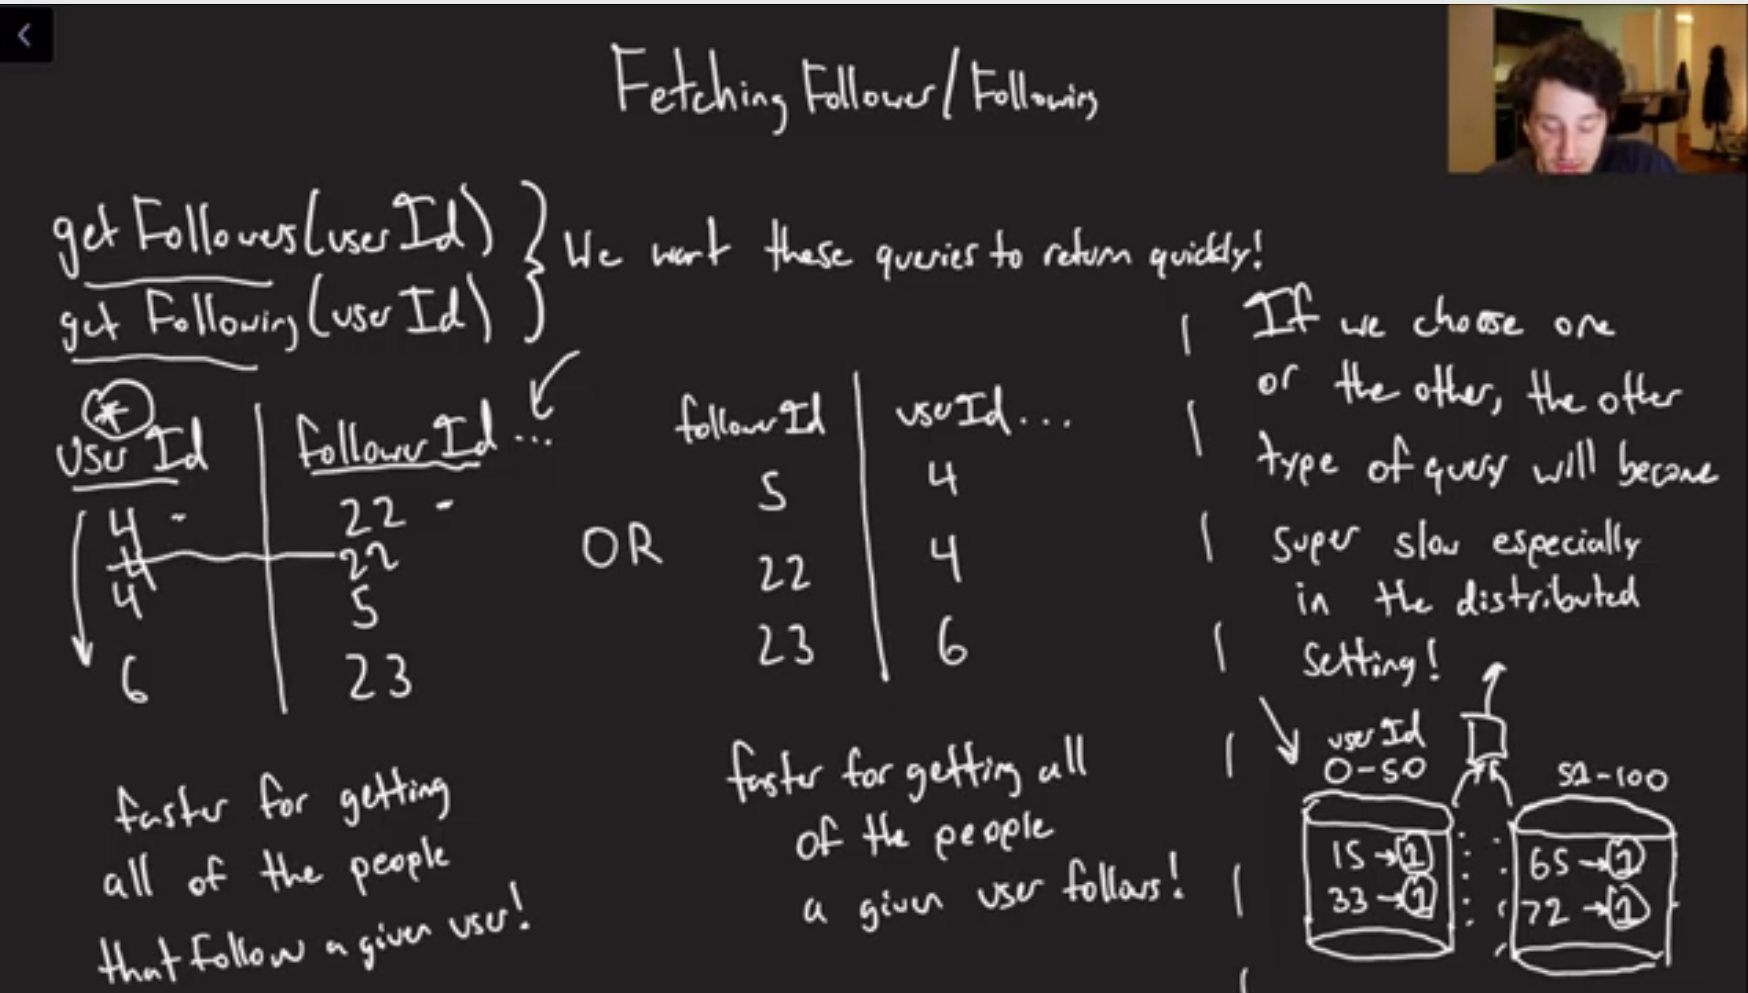 Fetching Follower/Following
get Followers(user Id)
get Following(user Id)
We want these queries to return quickly!
*
User Id
follower Id ...
4 22
4 22
4 5
6 23
faster for getting
all of the people
that follow a given user!
OR
follower Id userId...
5 4
22 4
23 6
faster for getting all
of the people
a given user follows!
If we choose one
or the other, the other
type of query will become
super slow especially
in the distributed
setting!
user Id
0-50
15→1
33→1
51-100
65→1
72→1